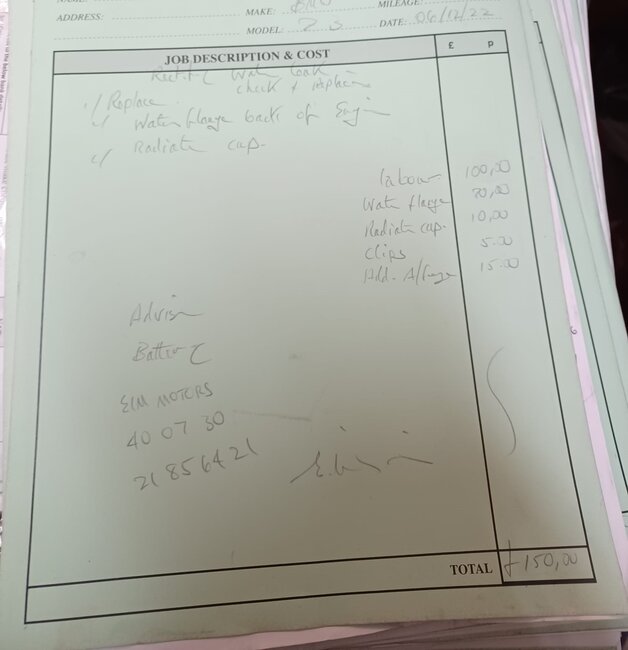 MAKE:
MILEAGE:
ADDRESS:
MODEL: DATE: 06/12/22
JOB DESCRIPTION & COST £ P
Water leak
check +
1/ Replace
Water flange back of Engin
Radiate cap.
labour 100,00
Wate flange 20,00
Radiate cap. 10,00
Clips 5.00
Add. A/freeze 15.00
Advise
Battery
EIM MOTORS
40 07 30
21856421
TOTAL £150,00